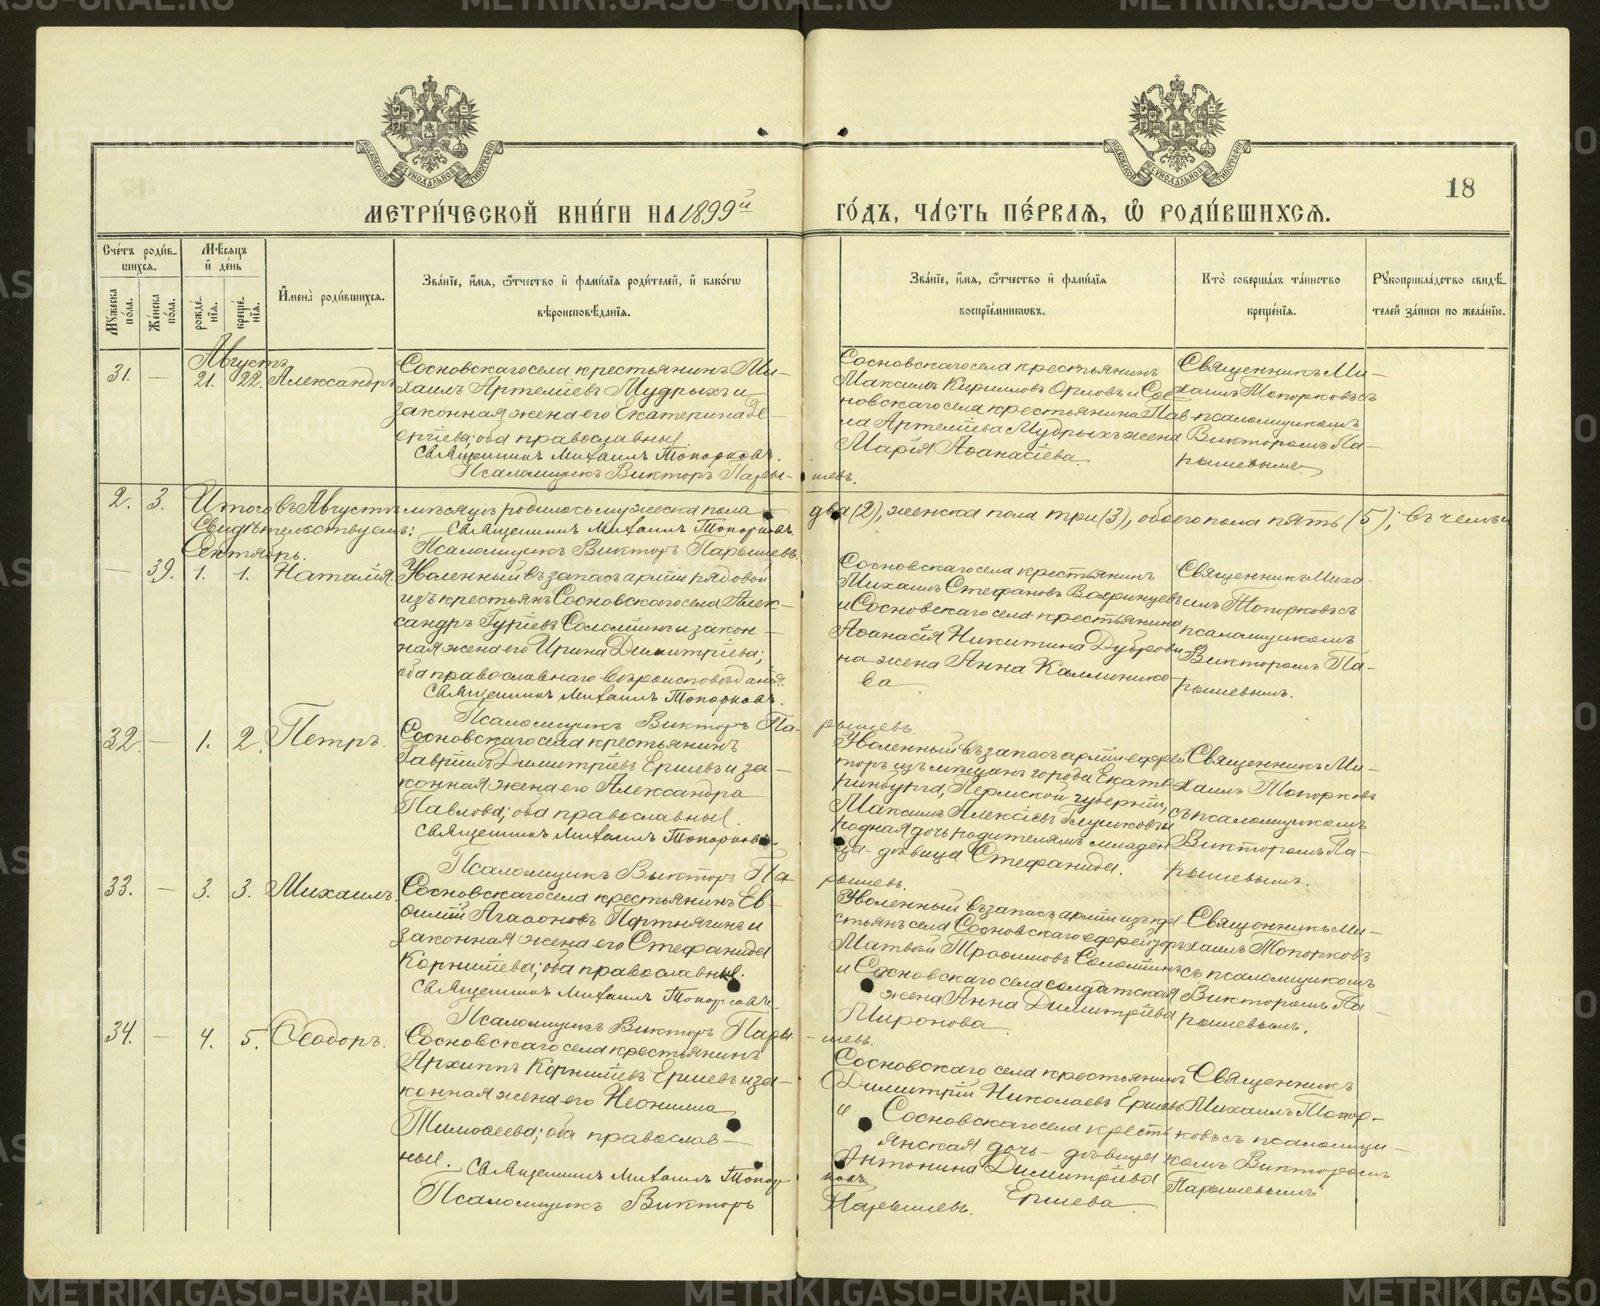 METRIKI.GASO-URAL.RU
МЕТРИ́ЧЕСКОЙ КНИ́ГИ НА 1899й
ГО́ДЪ, ЧА́СТЬ ПЕ́РВАѦ, Ѽ РОДИ́ВШИХСѦ.
18
Сче́тъ роди́вшихсѧ.
Мꙋ́жеска по́ла.
Же́нска по́ла.
Мѣ́сѧцъ и҆ де́нь
рожде́нїѧ.
креще́нїѧ.
И҆мена̀ роди́вшихсѧ.
Зва́нїе, и҆́мѧ, ѻ҆́тчество и҆ фами́лїѧ роди́телей, и҆ како́гѡ
вѣроисповѣ́данїѧ.
Зва́нїе, и҆́мѧ, ѻ҆́тчество и҆ фами́лїѧ
воспрїе́мникѡвъ.
Кто̀ соверша́лъ та́инство
креще́нїѧ.
Рꙋкоприкла́дство свидѣ́телей за́писи по жела́нїю.
Августъ
31. — 21. 22. Александръ
Сосновскаго села крестьянинъ Ми-
хаилъ Артемiевъ Мудрыхъ и
законная жена его Екатерина
оба православные.
Священникъ Михаилъ Топорковъ.
Псаломщикъ Викторъ Пары-
шевъ.
Сосновскаго села крестьянинъ
Максимъ Кирилловъ Орловъ и Сос-
новскаго села крестьянина Пав-
ла Артемiева Мудрыхъ жена
Марiя Аѳанасiева.
Священникъ Ми-
хаилъ Топорковъ съ
псаломщикомъ
Викторомъ Па-
рышевымъ
2. 3. Итого въ Августѣ мѣсяцѣ родилось мужеска пола
два (2), женска пола три (3), обоего пола пять (5); въ чемъ и
Свидѣтельствуемъ: Священникъ Михаилъ Топорковъ.
Псаломщикъ Викторъ Парышевъ.
Сентябрь.
— 39. 1. 1. Наталiя.
Уволенный въ запасъ армiи рядовой
изъ крестьянъ Сосновскаго села Алек-
сандръ Гурiевъ Соломiинъ и закон-
ная жена его Ирина Димитрiева;
оба православнаго вѣроисповѣданiя.
Священникъ Михаилъ Топорковъ.
Псаломщикъ Викторъ Па-
рышевъ.
Сосновскаго села крестьянинъ
Михаилъ Стефановъ
и Сосновскаго села крестьянина
Аѳанасiя Никитина Дуброви-
на жена Анна Каллиникo-
ва
Священникъ Миха-
илъ Топорковъ съ
псаломщикомъ
Викторомъ Па-
рышевымъ.
32. — 1. 2. Петръ.
Сосновскаго села крестьянинъ
Гаврiилъ Димитрiевъ Ершевъ и за-
конная жена его Александра
Павлова; оба православные.
Священникъ Михаилъ Топорковъ
Псаломщикъ Викторъ Па-
рышевъ.
Уволенный въ запасъ армiи ефрей-
торъ изъ мѣщанъ города Екате-
ринбурга, Пермской губернiи,
Максимъ Алексiевъ Глушковъ и
родная дочь родителямъ младен-
ца - дѣвица Стефанида.
Священникъ Ми-
хаилъ Топорковъ
съ псаломщикомъ
Викторомъ Па-
рышевымъ.
33. — 3. 3. Михаилъ.
Сосновскаго села крестьянинъ Ев-
ѳимiй Агаѳоновъ Портнягинъ и
законная жена его Стефанида
Корнилiева; оба православные.
Священникъ Михаилъ Топорковъ
Псаломщикъ Викторъ Пары-
шевъ.
Уволенный въ запасъ армiи изъ кре-
стьянъ села Сосновскаго ефрейторъ
Матвѣй Троѳимовъ Соломiинъ
и Сосновскаго села солдатская
жена Анна Димитрiева
Миронова
Священникъ Ми-
хаилъ Топорковъ
съ псаломщикомъ
Викторомъ Па-
рышевымъ.
34. — 4. 5. Ѳеодоръ.
Сосновскаго села крестьянинъ
Архиппъ Корнилiевъ Ершевъ и за-
конная жена его Неонилла
Тимоѳеева; оба православ-
ные. Священникъ Михаилъ Топор-
ковъ
Псаломщикъ Викторъ
Парышевъ.
Сосновскаго села крестьянинъ
Димитрiй Николаевъ Ершевъ
и Сосновскаго села кресть-
янская дочь - дѣвица
Антонина Димитрiева
Ершева
Священникъ
Михаилъ Топор-
ковъ съ псаломщи-
комъ Викторомъ
Парышевымъ